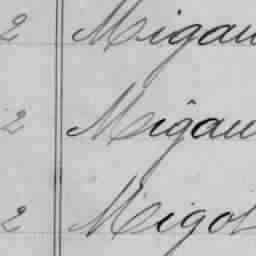 2 Migau
2 Migau
2 Migot